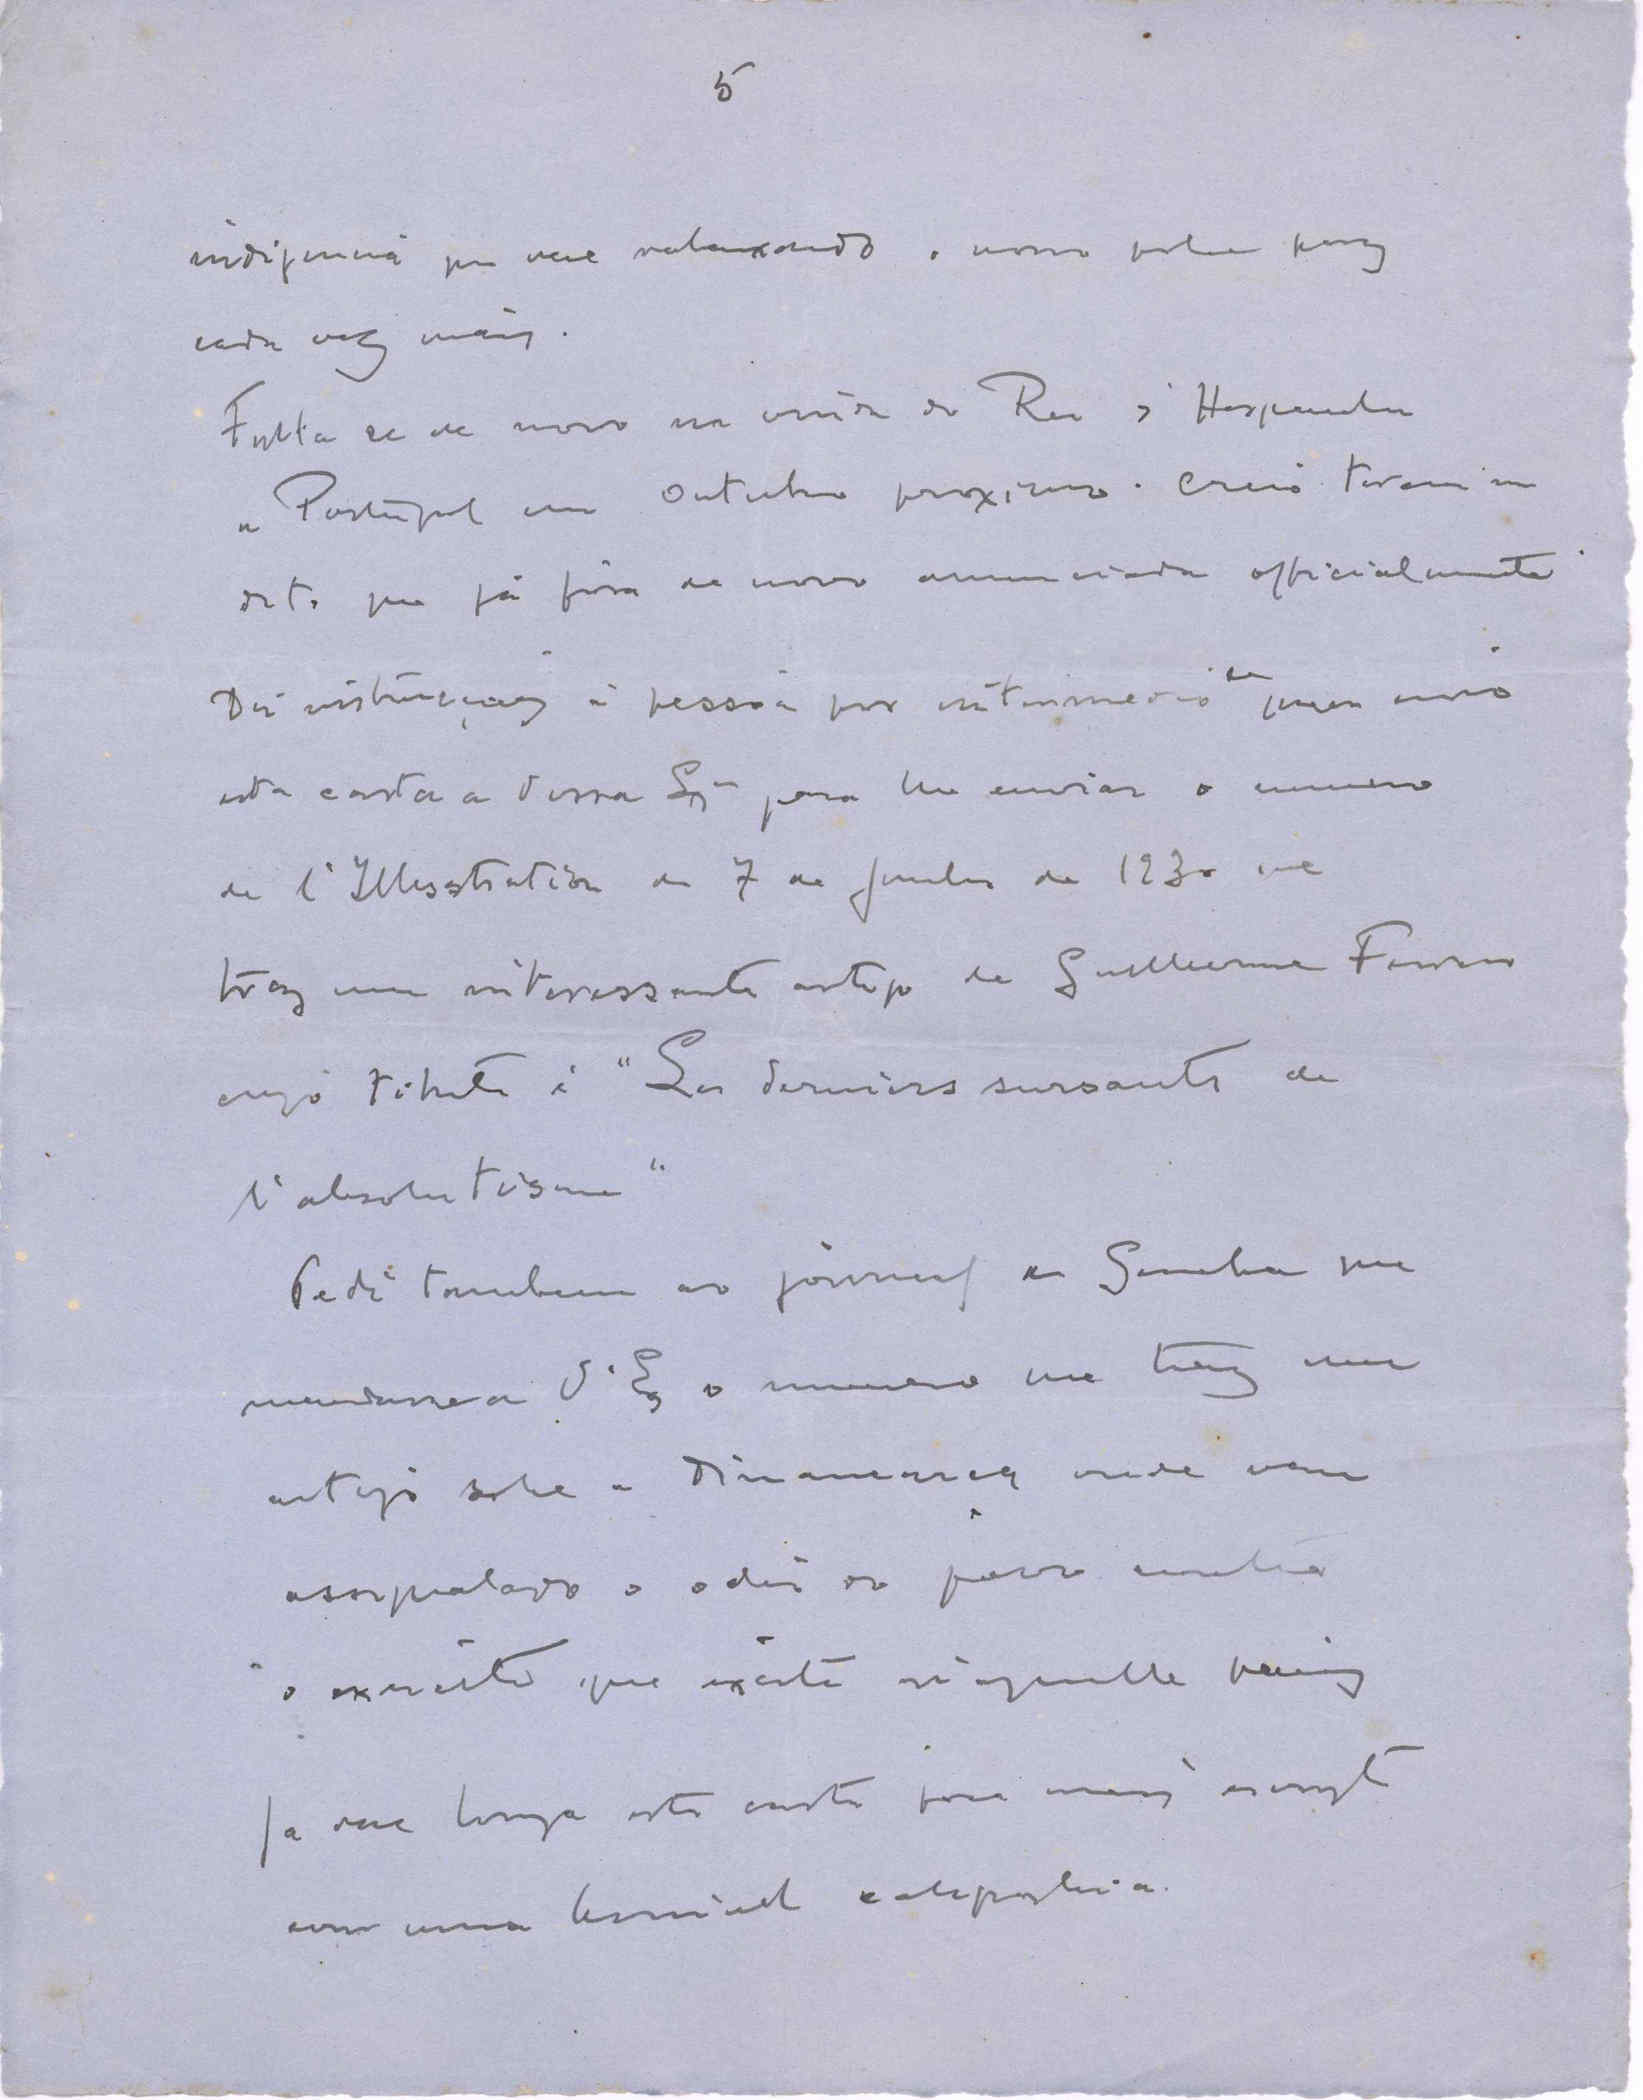 5
indigencia que vae rebaixando o nosso pobre paiz
cada vez mais.
Falla se de novo na vinda do Rei d'Hespanha
a Portugal em Outubro proximo. Creio terem me
dito que já fôra de novo annunciada officialmente.
Dei instrucções á pessôa por intermedio de quem envio
esta carta a Vossa Exª para lhe enviar o numero
de l'Illustration de 7 de Junho de 1930 que
traz um interessante artigo de Guilherme Ferrero
cujo titulo é "Les derniers sursauts de
l'absolutisme"
Pedi tambem ao jornal de Genebra que
mandasse a V. Ex o numero que traz um
artigo sobre a Dinamarca onde vem
assignalado o odio do povo contra
o exercito que existe n'aquelle paiz
Já vae longa esta carta para mais escripta
com uma terrivel caligraphia.